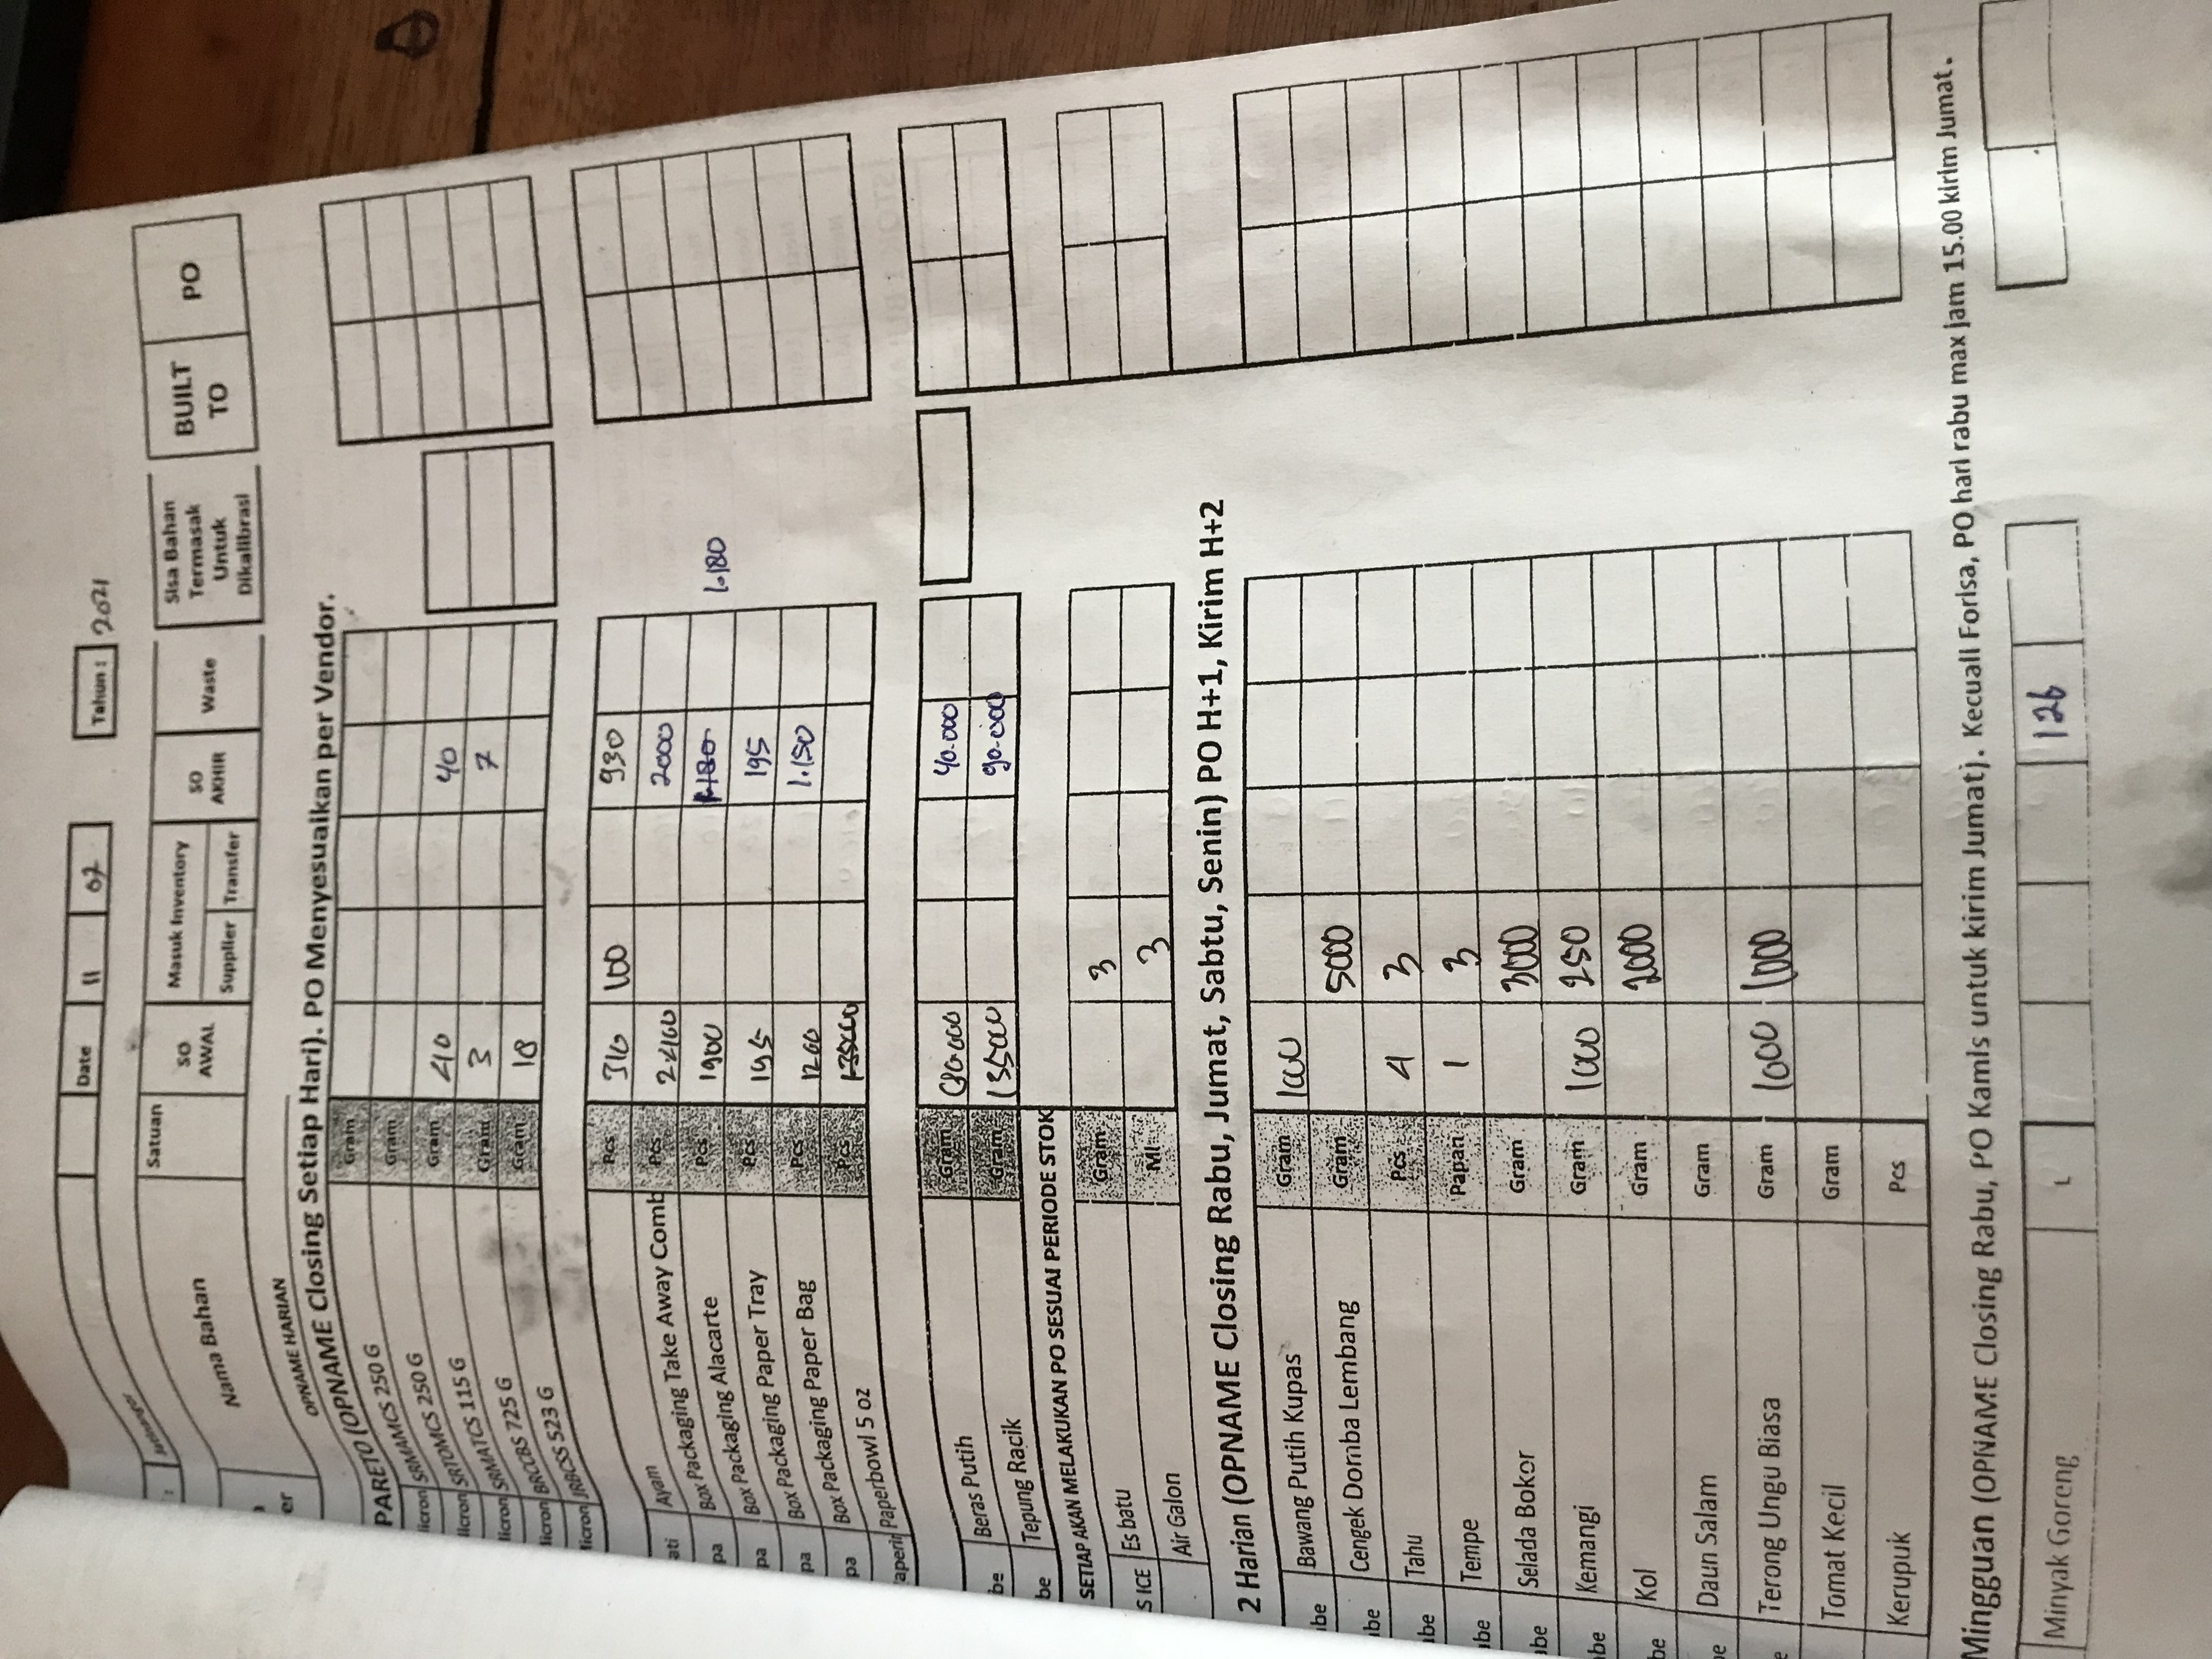 Date 11 07 Tahun : 2021
: Jatinangor
Nama Bahan Satuan SO AWAL Masuk Inventory Supplier Transfer SO AKHIR Waste Sisa Bahan Termasak Untuk Dikalibrasi BUILT TO PO
er
OPNAME HARIAN
PARETO (OPNAME Closing Setiap Hari). PO Menyesuaikan per Vendor.
licron SRMAMCS 250 G Gram
licron SRTOMCS 250 G Gram
licron SRMATCS 115 G Gram 40 40
licron BRCCBS 725 G Gram 3 7
licron JRBCSS 523 G Gram 18
ati Ayam Pcs 310 100 930
pa Box Packaging Take Away Comb Pcs 2000
pa Box Packaging Alacarte Pcs 1900 1.180 1.180
pa Box Packaging Paper Tray Pcs 195 195
pa Box Packaging Paper Bag Pcs 1200 1.150
aperin Paperbowl 5 oz Pcs
be Beras Putih Gram 40.000
be Tepung Racik Gram 135000 90.000
SETIAP AKAN MELAKUKAN PO SESUAI PERIODE STOK
S ICE Es batu Gram 3
Air Galon Ml 3
2 Harian (OPNAME Closing Rabu, Jumat, Sabtu, Senin) PO H+1, Kirim H+2
be Bawang Putih Kupas Gram 1000
be Cengek Domba Lembang Gram 5000
be Tahu Pcs 4 3
be Tempe Papan 1 3
be Selada Bokor Gram 3000
be Kemangi Gram 1000 250
be Kol Gram 2000
e Daun Salam Gram
e Terong Ungu Biasa Gram 1000 1000
Tomat Kecil Gram
Kerupuk Pcs
Mingguan (OPNAME Closing Rabu, PO Kamis untuk kirim Jumat). Kecuali Forisa, PO hari rabu max jam 15.00 kirim Jumat.
Minyak Goreng L 126